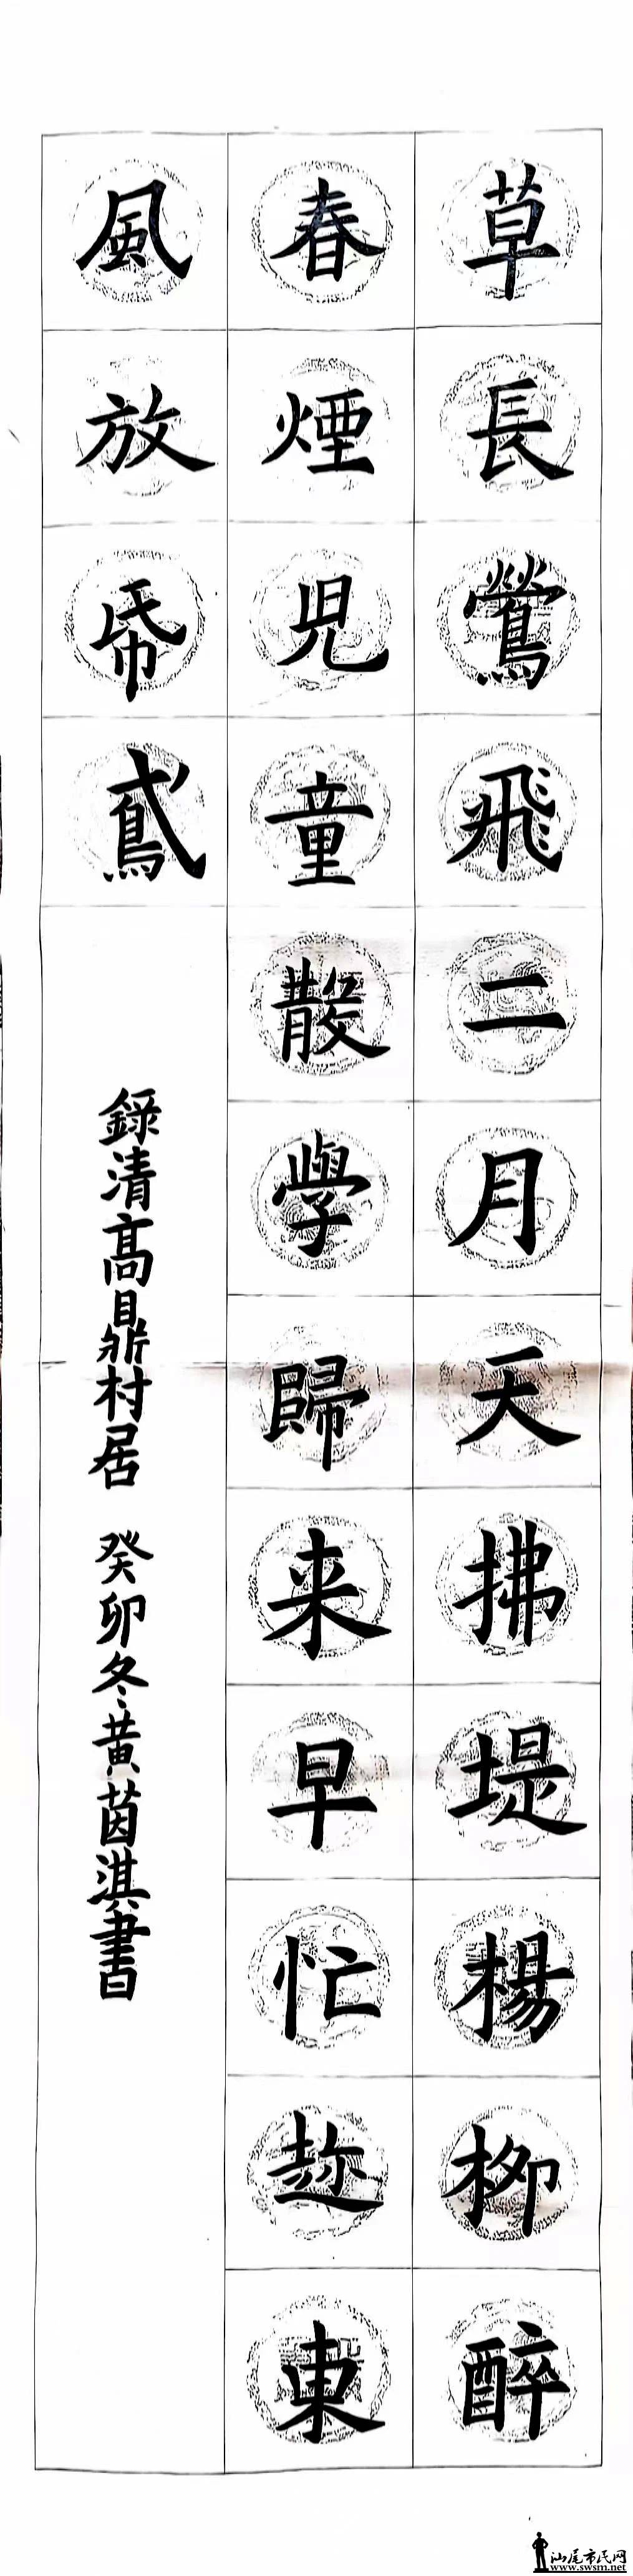 草長鶯飛二月天拂堤楊柳醉
春煙児童散學歸来早忙趂東
風放帋鳶
錄清高鼎村居 癸卯冬黄茵淇書
汕尾市民网
www.swsm.net